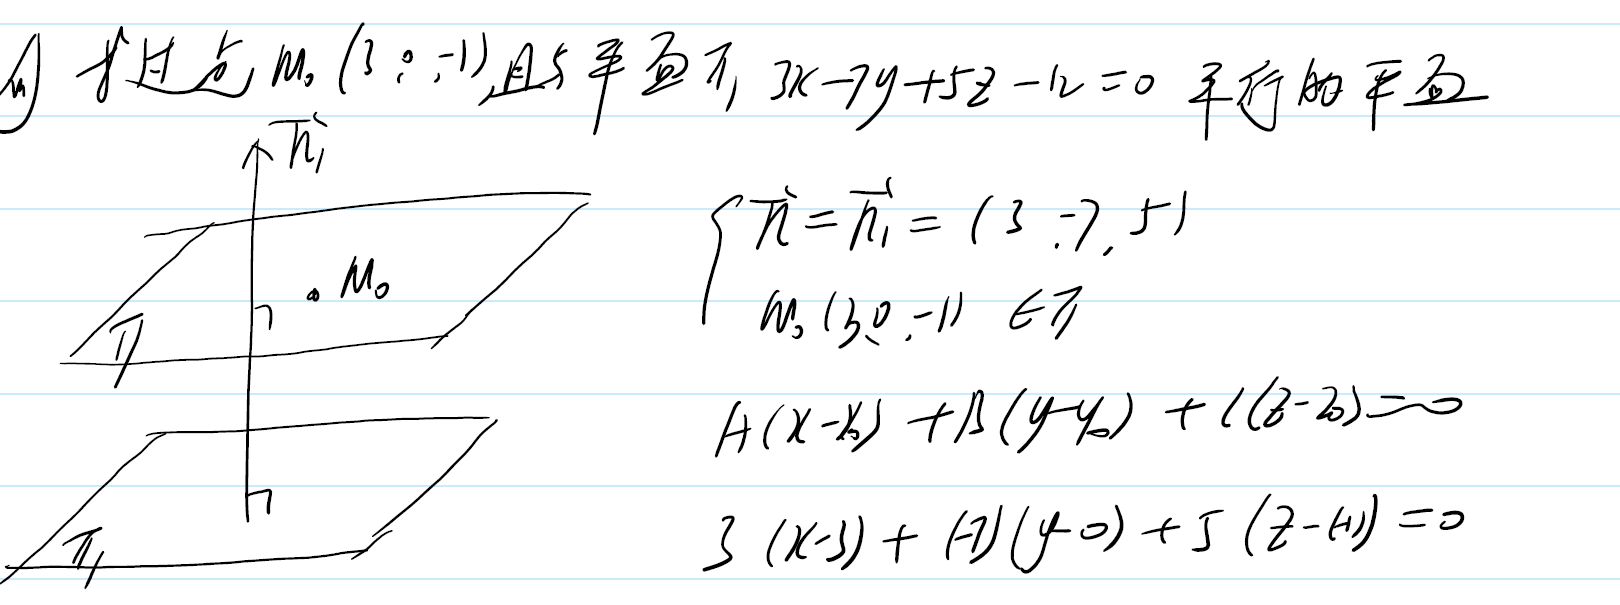 例 求过点 M₀(3,0,-1),且与平面π₁ 3x-7y+5z-12=0 平行的平面
n⃗₁
n⃗=n⃗₁=(3,-7,5)
M₀
M₀(3,0,-1) ∈π
π
A(x-x₀)+B(y-y₀)+C(z-z₀)=0
π₁
3(x-3)+(-7)(y-0)+5(z-(-1))=0